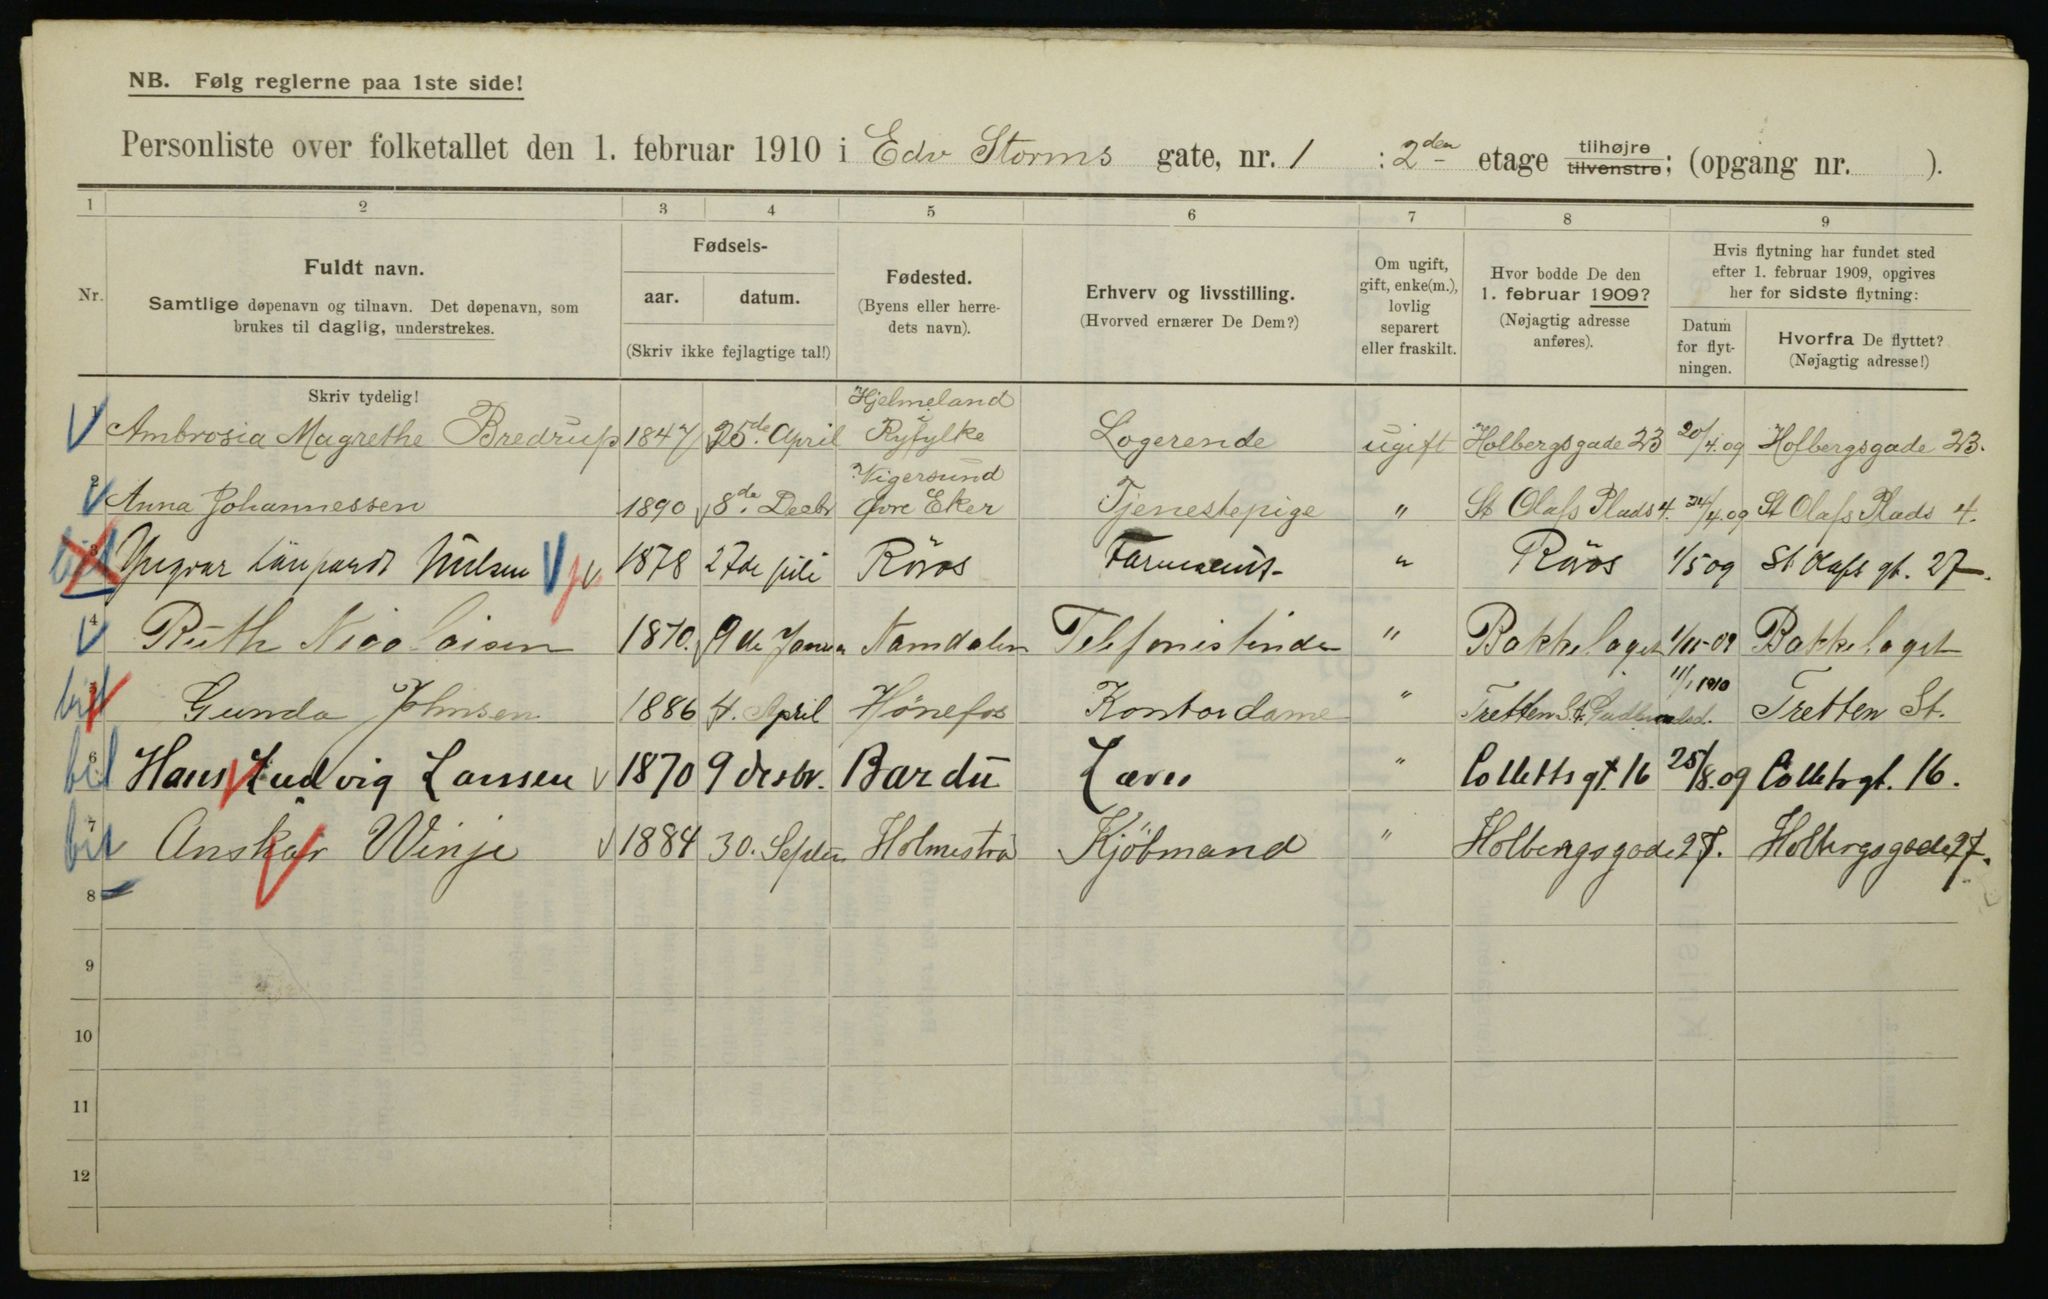 NB. Følg reglerne paa 1ste side!
Personliste over folketallet den 1. februar 1910 i Edv Storms gate, nr. 1 : 2den etage tilhøjre tilvenstre; (opgang nr. ).
1 2 3 4 5 6 7 8 9
Nr.
Fuldt navn.
Samtlige døpenavn og tilnavn. Det døpenavn, som
brukes til daglig, understrekes.
Fødsels-
aar. datum.
(Skriv ikke fejlagtige tal!)
Fødested.
(Byens eller herre-
dets navn).
Erhverv og livsstilling.
(Hvorved ernærer De Dem?)
Om ugift,
gift, enke(m.),
lovlig
separert
eller fraskilt.
Hvor bodde De den
1. februar 1909?
(Nøjagtig adresse
anføres).
Hvis flytning har fundet sted
efter 1. februar 1909, opgives
her for sidste flytning:
Datum
for flyt-
ningen.
Hvorfra De flyttet?
(Nøjagtig adresse!)
Skriv tydelig!
Hjelmeland
1 Ambrosia Magrethe Bredrup 1847 25de April Ryfylke Logerende ugift Holbergsgade 23 20/4.09 Holbergsgade 23.
Vigersund
2 Anna Johannessen 1890 8de Decbr Øvre Eker Tjenestepige " St Olafs Plads 4. 24/4.09 St Olafs Plads 4.
bit 3 Yngvar Nilsen 1878 27de juli Röros Farmaceut " Röros 1/5 09 St Olafs gt. 27.
4 Ruth Nicolaisen 1870. 9de Janua Namdalen Telefonistinde " Bakkelaget 09 Bakkelaget
bit 5 Gunda Johnsen 1886 4. April Hönefos Kontordame " Tretten St. Gudbrandsd. 11/1 1910 Tretten St.
bit 6 Hans Ludvig Larssen 1870 9 desbr. Bardu Lærer " Colletts gt. 16 25/8.09 Colletsgt. 16.
bit 7 Anskar Winje 1884 30. Septbr Holmestra Kjöbmand " Holbergsgade 27. Holbergsgade 27.
8
9
10
11
12